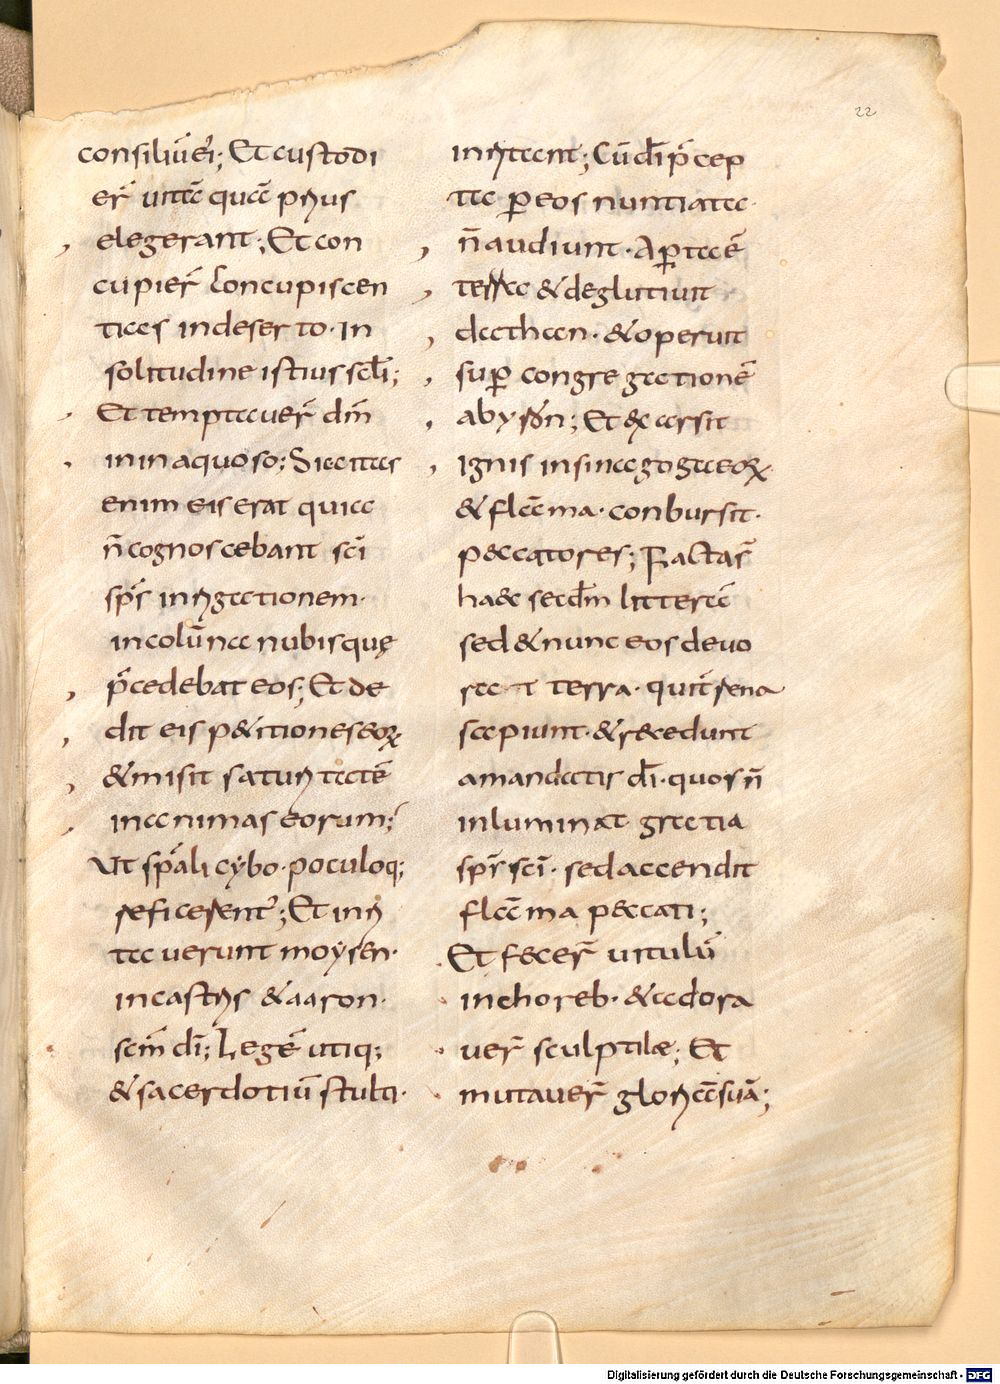 22
consiliũ ei; Et custodi
er̃ uitã quã prius
elegerant; Et con
cupier̃ concupiscen
tias in deserto · In
solitudine istius scl̃i;
Et temptauer̃ dm̃
in inaquoso; Siccitas
enim eis erat quia
ñ cognoscebant sc̃i
sp̃s inrigationem ·
in colũna nubis quę
p̃cedebat eos; Et de
dit eis p&itiones eoꝝ ·
& misit saturitatẽ
in animas eorum;
Ut sp̃ali cybo · poculoq;
reficerent̃; Et inri
tauerunt moysen ·
in castris & aaron ·
scm̃ dĩ; Legẽ utiq;
& sacerdotiũ stulti ·
inritant; Cũ dĩ p̃cep
ta ꝑ eos nuntiata ·
ñ audiunt · Aꝑta ẽ
terra & deglutiuit
dathan · & operuit
suꝑ congregationẽ
abyron; Et &xarsit
ignis in sinagoga eoꝝ ·
& flãma · conbursit ·
p&catores; Facta s̃
ha&c secdm̃ litterã
sed & nunc eos deuo
rat terra · qui t̃rena
sapiunt · & r&cedunt
a mandatis dĩ · quos ñ
inluminat gratia
sp̃s sc̃i · sed accendit
flãma p&cati;
Et f&cer̃ uitulũ
in choreb · & adora
uer̃ sculptilæ; Et
mutauer̃ gloriã suã;
Digitalisierung gefördert durch die Deutsche Forschungsgemeinschaft - DFG